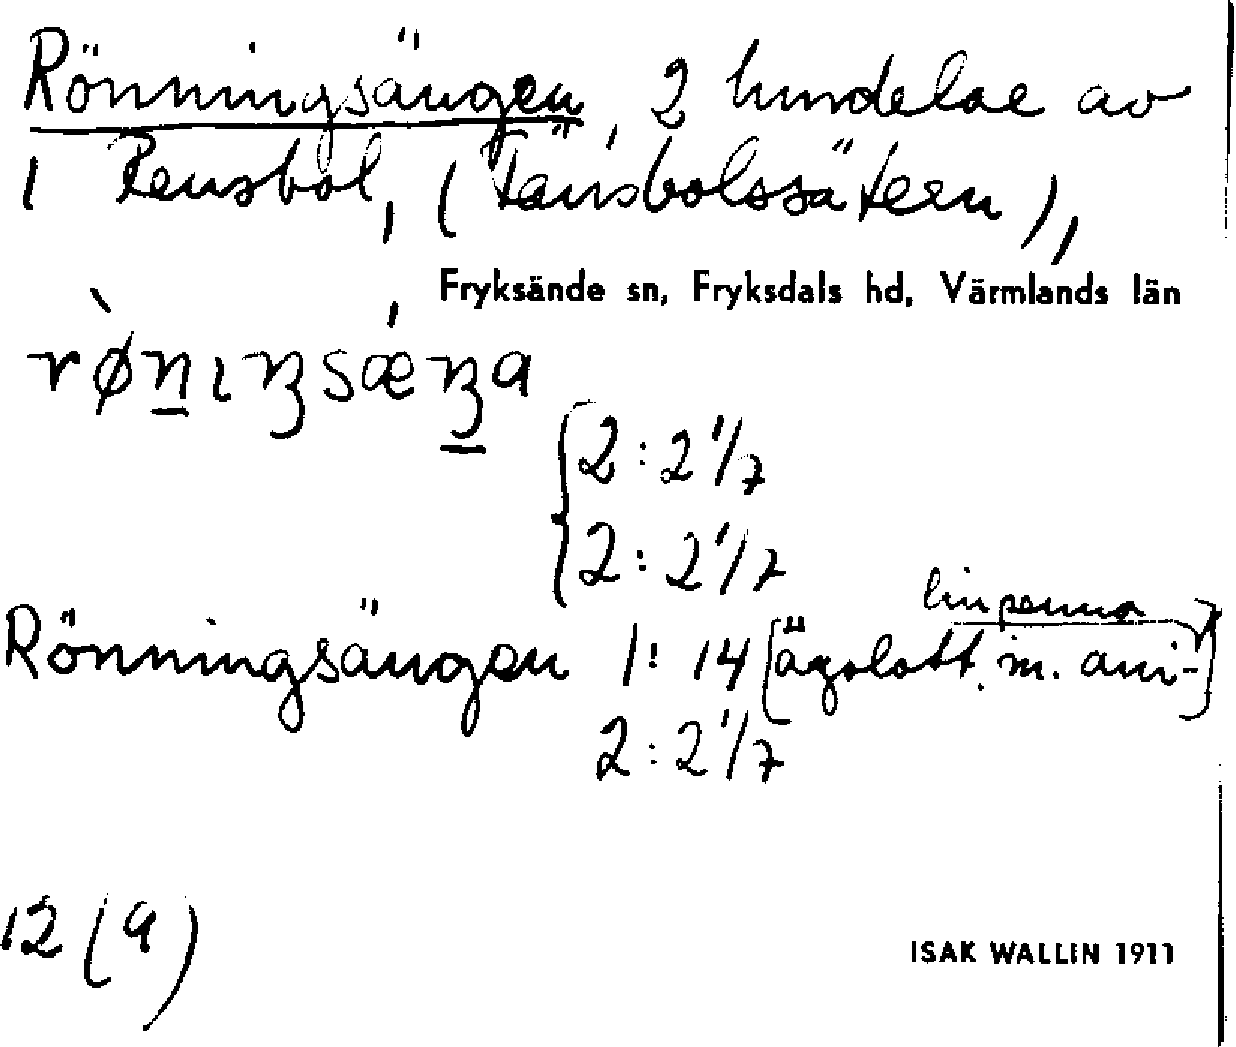 Rönningsängen, 2 hmdelar av
1 Rensbol, (Tänsbolssätern),
Fryksände sn, Fryksdals hd, Värmlands län
2:2 1/7
2:2 1/7
linpenna
Rönningsängen 1:14 [ägolott. m. ani-]
2:2 1/7
12 (a)
ISAK WALLIN 1911